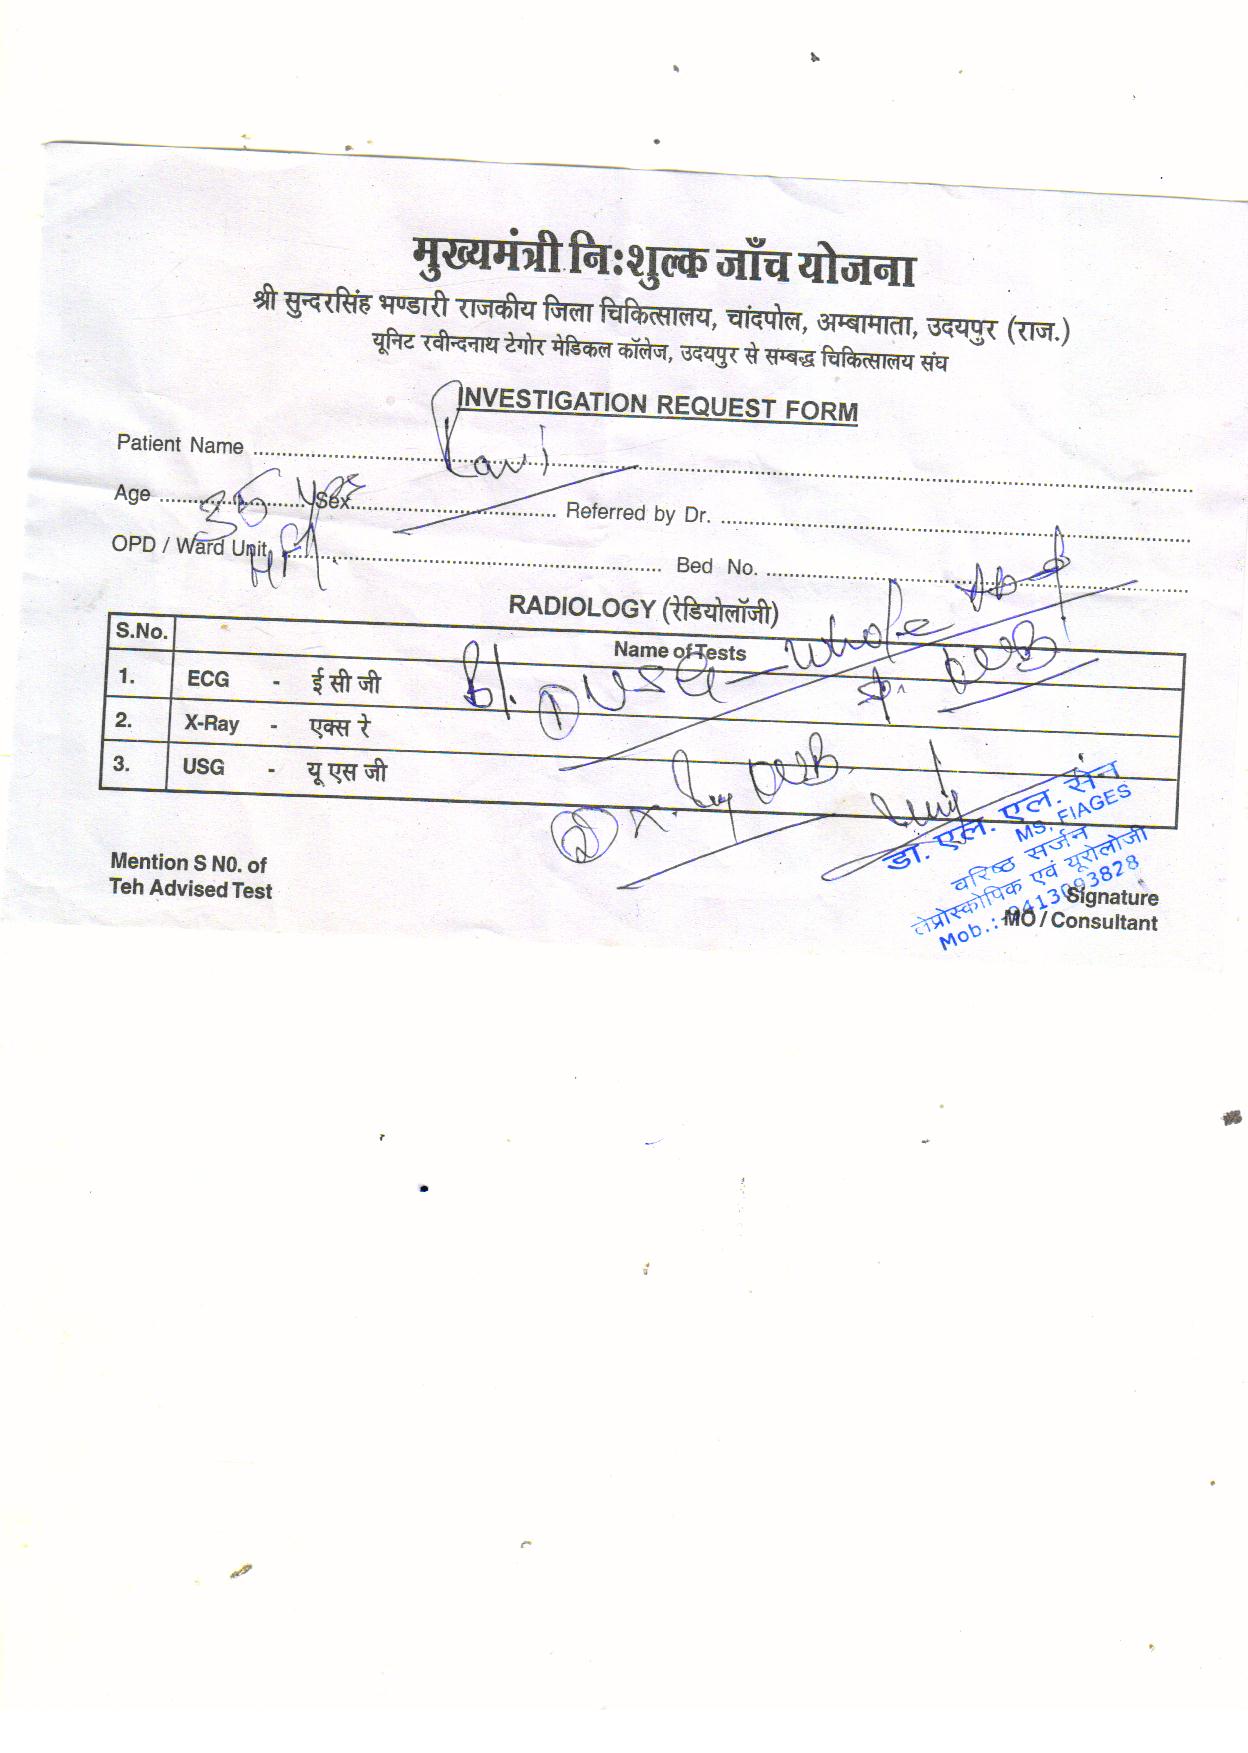 मुख्यमंत्री नि:शुल्क जाँच योजना
श्री सुन्दरसिंह भण्डारी राजकीय जिला चिकित्सालय, चांदपोल, अम्बामाता, उदयपुर (राज.)
यूनिट रवीन्दनाथ टेगोर मेडिकल कॉलेज, उदयपुर से सम्बद्ध चिकित्सालय संघ
INVESTIGATION REQUEST FORM
Patient Name Ravi
Age 36 yrs Sex Referred by Dr.
OPD / Ward Unit Bed No.
RADIOLOGY (रेडियोलॉजी)
S.No. Name of Tests
1. ECG - ई सी जी
2. X-Ray - एक्स रे
3. USG - यू एस जी
① USG whole Abd
KUB
② X-Ray KUB
डा. एल. एल. सेन
MS, FIAGES
वरिष्ठ सर्जन
लेप्रोस्कोपिक एवं यूरोलोजी
Mob.:
Mention S N0. of
Teh Advised Test
Signature
MO / Consultant